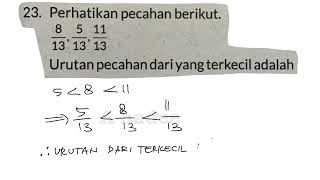 23. Perhatikan pecahan berikut.
8/13, 5/13, 11/13
Urutan pecahan dari yang terkecil adalah
5 < 8 < 11
⇒ 5/13 < 8/13 < 11/13
∴ URUTAN DARI TERKECIL :